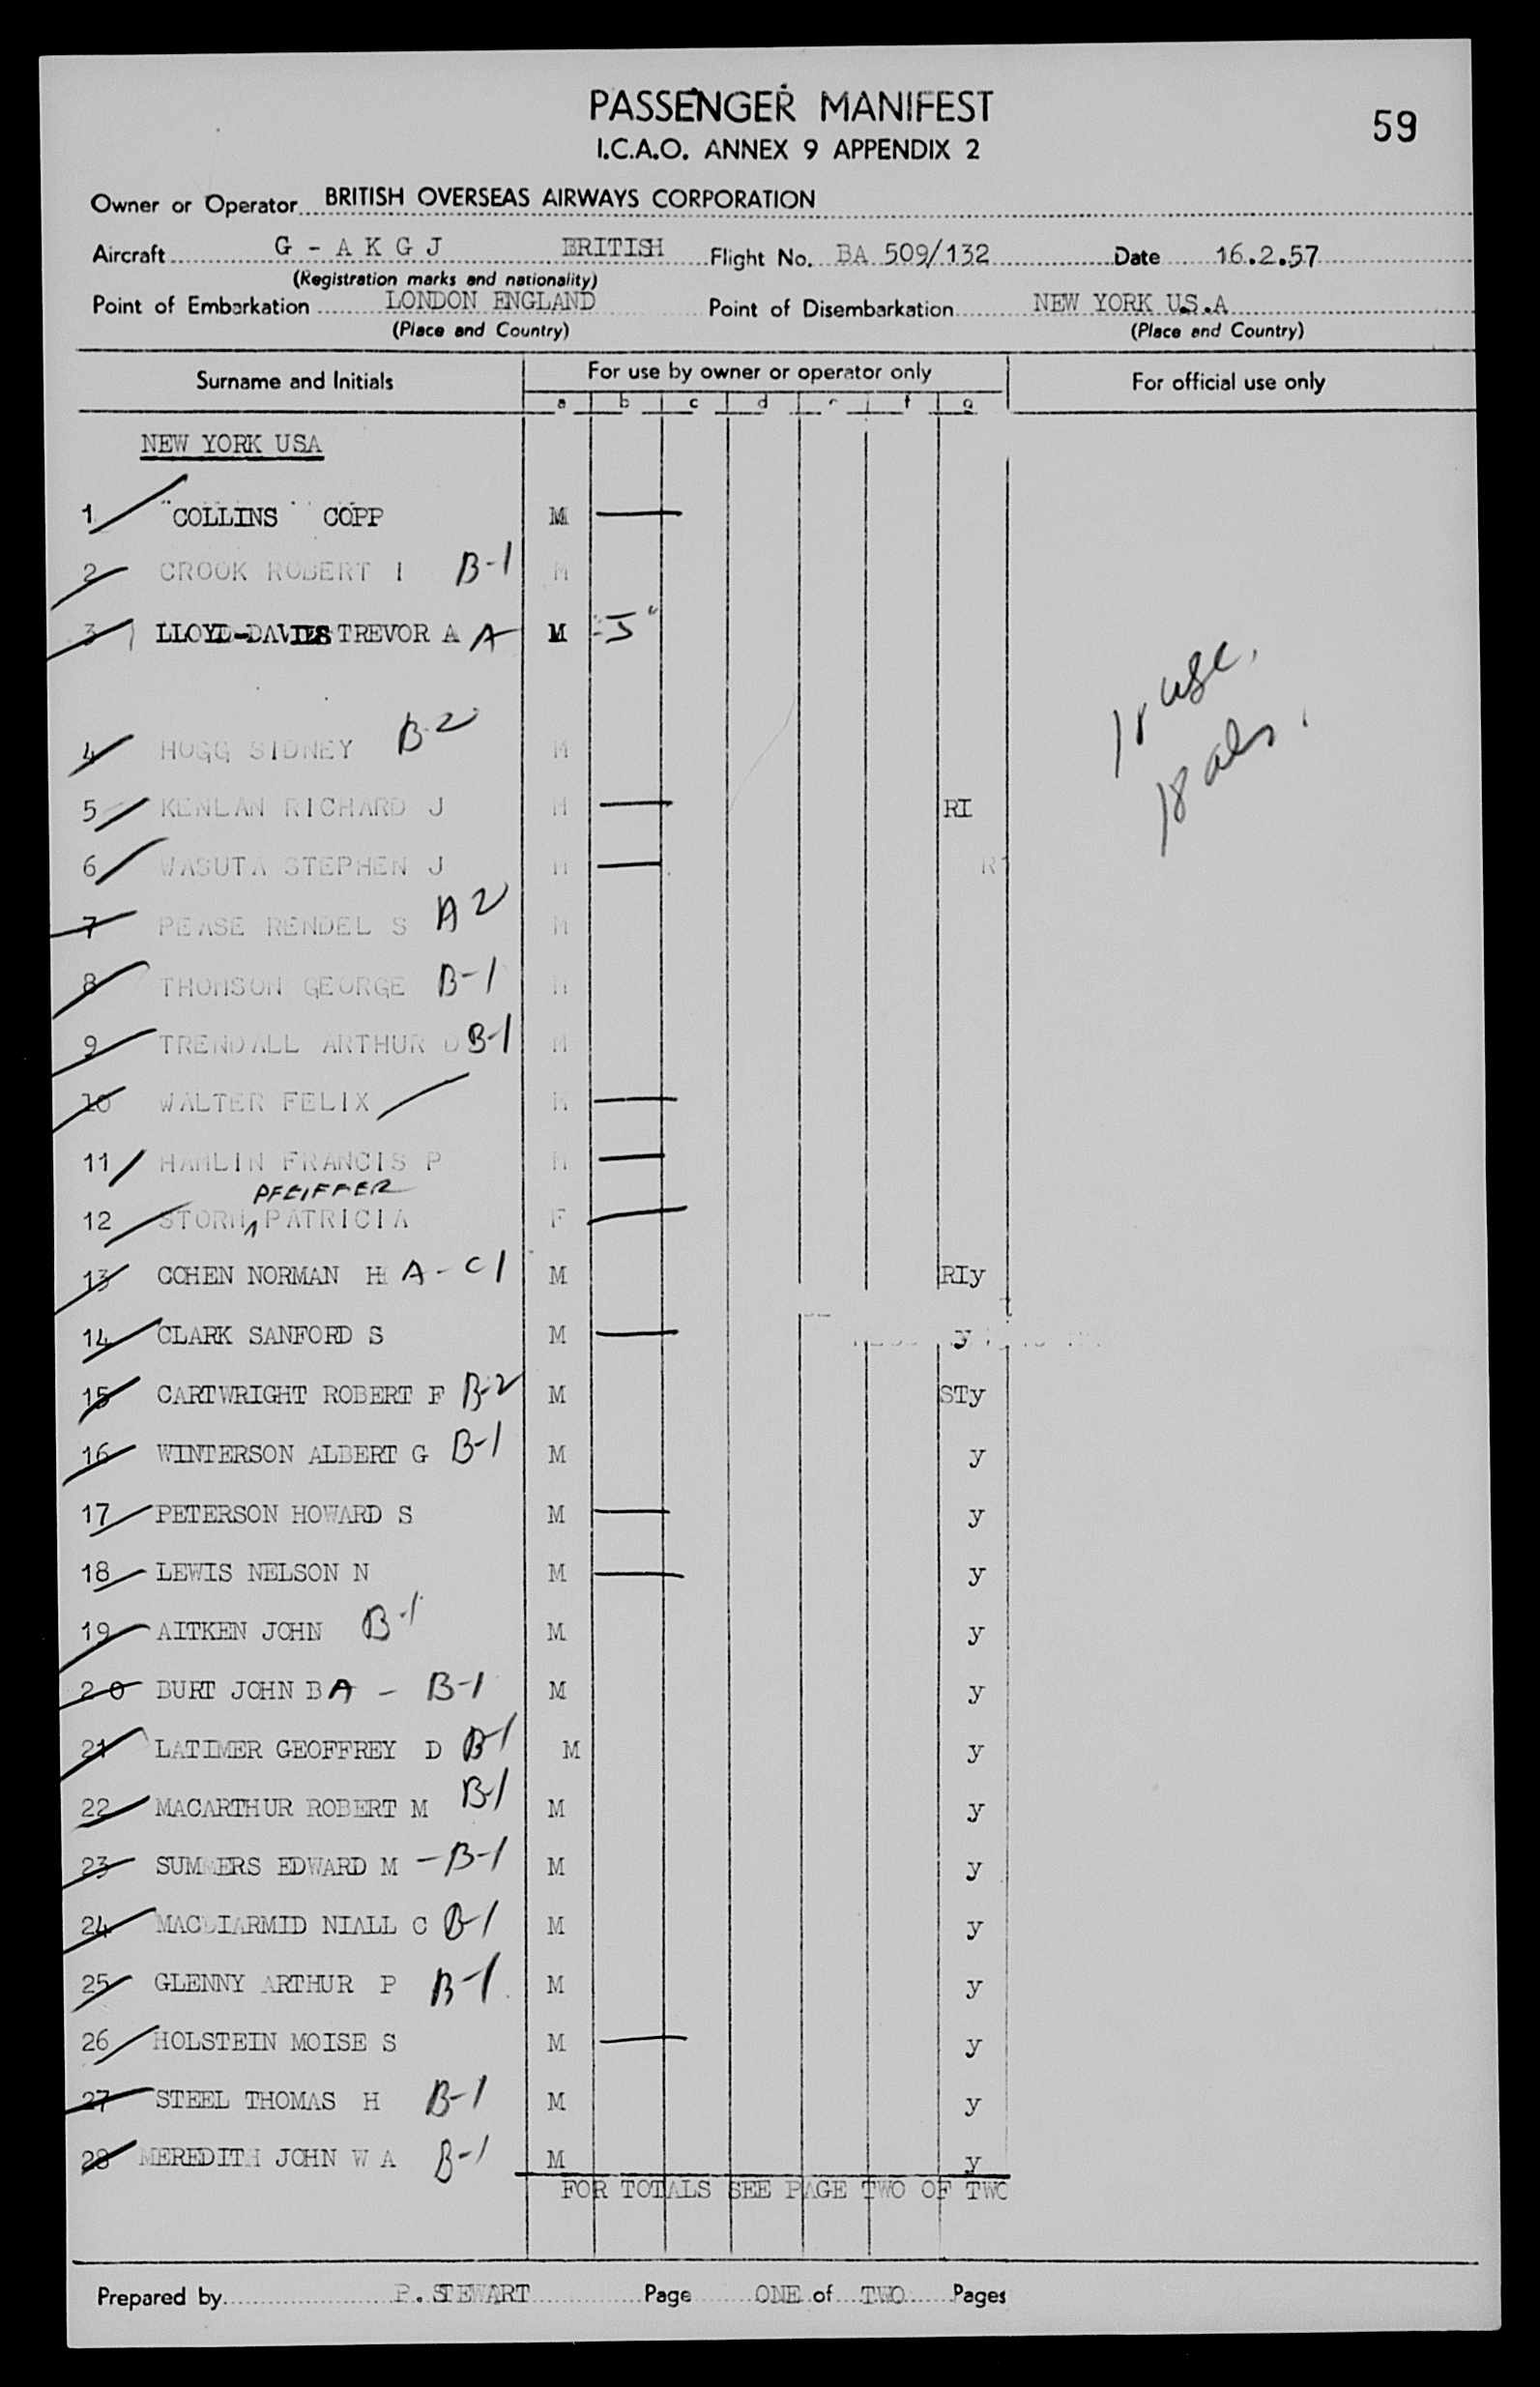 PASSENGER MANIFEST
59
I.C.A.O. ANNEX 9 APPENDIX 2
Owner or Operator BRITISH OVERSEAS AIRWAYS CORPORATION
Aircraft G - A K G J BRITISH Flight No. BA 509/132 Date 16.2.57
(Registration marks and nationality)
Point of Embarkation LONDON ENGLAND Point of Disembarkation NEW YORK U.S.A
(Place and Country) (Place and Country)
Surname and Initials For use by owner or operator only For official use only
a b c d e f g
NEW YORK USA
1 "COLLINS" COPP M
2 CROOK ROBERT I B-1 M
3 LLOYD-DAVIES TREVOR A A M "J"
4 HOGG SIDNEY B-2 M
5 KENLAN RICHARD J M RI
6 WASUTA STEPHEN J M
7 PEASE RENDEL S A2 M
8 THOMSON GEORGE B-1 M
9 TRENDALL ARTHUR D B-1 M
10 WALTER FELIX M
11 HAMLIN FRANCIS P M
PFEIFFER
12 STORM PATRICIA F
13 COHEN NORMAN H A - C1 M RIy
14 CLARK SANFORD S M y
15 CARTWRIGHT ROBERT F B-2 M STy
16 WINTERSON ALBERT G B-1 M y
17 PETERSON HOWARD S M y
18 LEWIS NELSON N M y
19 AITKEN JOHN B-1 M y
20 BURT JOHN B A - B-1 M y
21 LATIMER GEOFFREY D B-1 M y
22 MACARTHUR ROBERT M B-1 M y
23 SUMMERS EDWARD M - B-1 M y
24 MACDIARMID NIALL C B-1 M y
25 GLENNY ARTHUR P B-1 M y
26 HOLSTEIN MOISE S M y
27 STEEL THOMAS H B-1 M y
28 MEREDITH JOHN W A B-1 M y
FOR TOTALS SEE PAGE TWO OF TWO
Prepared by P. STEWART Page ONE of TWO Pages